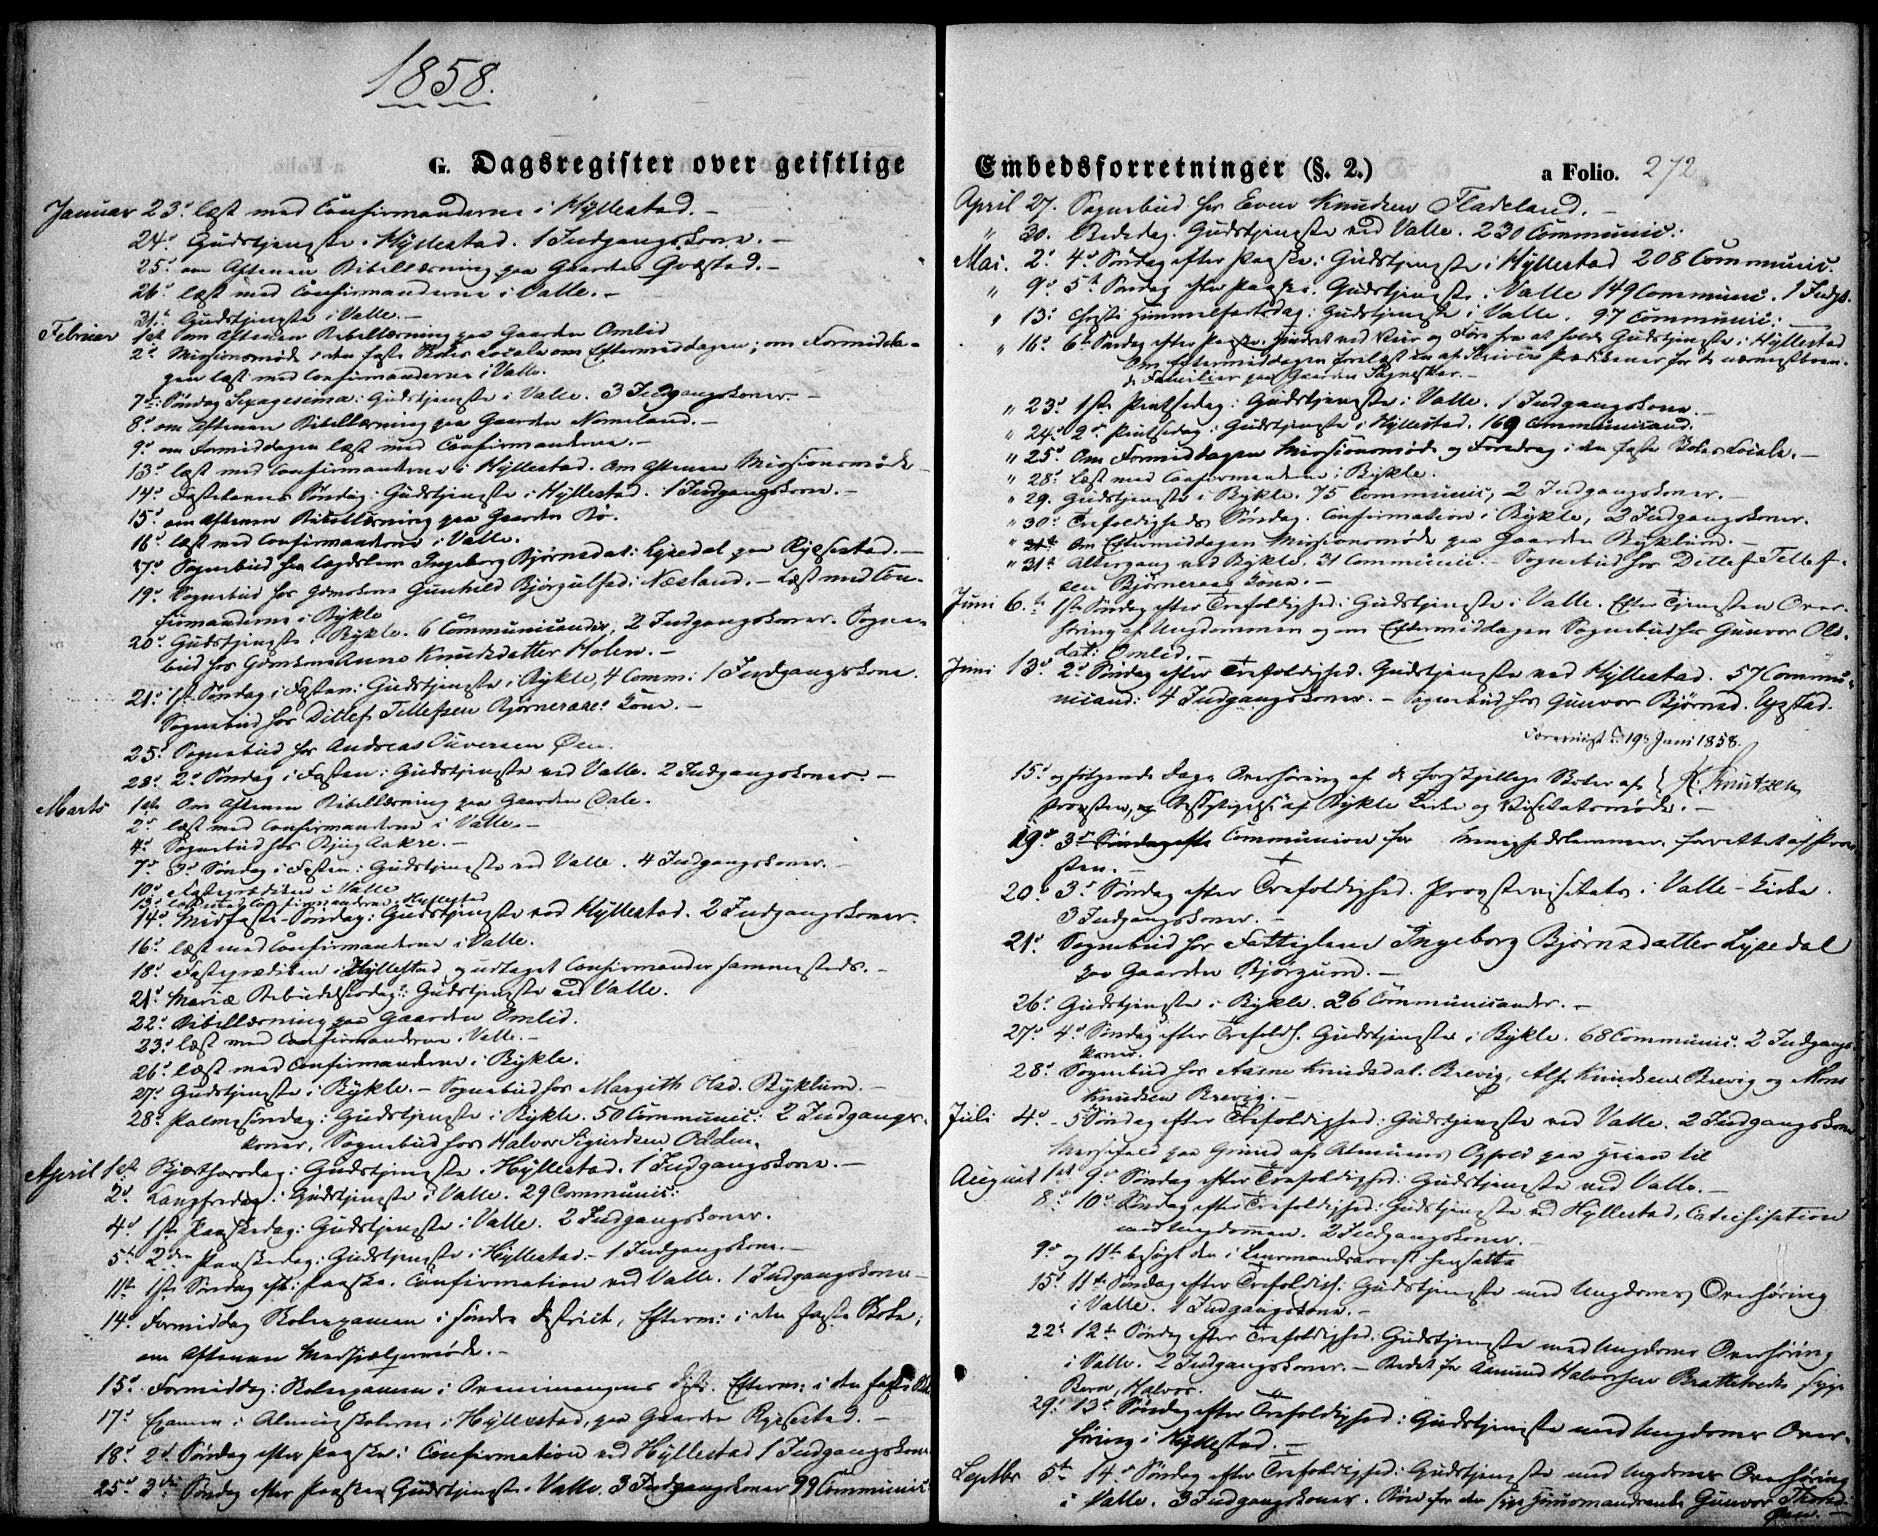 1858.
G. Dagsregister over geistlige
Januar 23de læst med Confirmanderne i Hyllestad. -
24de Gudstjeneste i Hyllestad. 1 Indgangskone. -
25de om Aftenen Bibellæsning paa Gaarden
26de læst med Confirmanderne i Valle. -
31te Gudstjeneste i Valle. -
Februar 1ste om Aftenen Bibellæsning paa Gaarden Omlid
2den Missionsmøde i den faste Skoles Locale om Eftermiddagen; om Formidda-
gen læst med Confirmanderne i Valle.
7de Søndag Sexagesima: Gudstjeneste i Valle. 3 Indgangskoner. -
8de om Aftenen Bibellæsning paa Gaarden Nomeland. -
9de om Formiddagen læst med Confirmanderne. -
13de læst med Confirmanderne i Hyllestad. Om Aftenen Missionsmøde
14de Fastelavns Søndag: Gudstjeneste i Hyllestad. 1 Indgangskone. -
15de om Aftenen Bibellæsning paa Gaarden Bø.
16de læst med Confirmanderne i Valle.
17de Sognebud hos Lægdslem Ingeborg Bjørnsdat: Lysedal paa Rysestad. -
19de Sognebud hos Gunhild Bjørgulfsd: Næsland. - Læst med Con-
firmanderne i Bykle
20de Gudstjeneste i Bykle. 6 Communicanter, 2 Indgangskoner. Sogne-
bud hos Anne Knudsdatter Holen. -
21de 1ste Søndag i Fasten: Gudstjeneste i Bykle, 4 Comm: 1 Indgangskone.
Sognebud hos Ditlef Tellefsen Bjørneraaes Kone. -
25de Sognebud hos Andreas Øen.
28de 2den Søndag i Fasten: Gudstjeneste ved Valle. 2 Indgangskoner. -
Marts 1ste Om Aftenen Bibellæsning paa Gaarden Dale.
2den læst med Confirmanderne i Valle. -
4de Sognebud hos Bjug Aakre. -
7de 3die Søndag i Fasten: Gudstjeneste ved Valle. 4 Indgangskoner. -
10de Fasteprædiken i Valle
13de læst med Confirmanderne i Hyllestad
14de Midfaste-Søndag: Gudstjeneste ved Hyllestad. 2 Indgangskoner.
16de læst med Confirmanderne i Valle.
18de Fasteprædiken i Hyllestad, udtaget Confirmander sammesteds. -
21de Mariæ Bebudelsesdag: Gudstjeneste ved Valle.
22de Bibellæsning paa Gaarden Omlid.
23de læst med Confirmanderne i Valle. -
26de læst med Confirmanderne i Bykle.
27de Gudstjeneste i Bykle. - Sognebud hos Margith Olsd. Byklum. -
28de Palmesøndag: Gudstjeneste i Bykle. 50 Communic: 2 Indgangs-
koner, Sognebud hos Halvor Sigurdsen Odden.
April 1ste Skjærthorsdag: Gudstjeneste i Hyllestad. 1 Indgangskone. -
2den Langfredag: Gudstjeneste i Valle. 29 Communic:
4de 1ste Paaskedag: Gudstjeneste i Valle. 2 Indgangskoner.
5te 2den Paaskedag: Gudstjeneste i Hyllestad. - 1 Indgangskone. -
11te 1ste Søndag eft: Paaske. Confirmation ved Valle. 1 Indgangskone -
14de Formiddag Skoleexamen i søndre District, Efterm: i den faste Skole;
om Aftenen -
15de Formiddag: Skoleexamen i Distr. Efterm: i den faste
17de Examen i Almueskolerne i Hyllestad, paa Gaarden Rysestad. -
18de 2den Søndag efter Paaske: Confirmation ved Hyllestad 1 Indgangskone
25de 3die Søndag efter Paaske: Gudstjeneste i Valle. 3 Indgangskoner 99 Communic:
Embedsforretninger (§. 2.)
a Folio. 272
April 27. Sognebud hos Even Knudsen Fladeland. -
" 30. Bededag. Gudstjeneste ved Valle. 230 Communic:
Mai. 2den 4de Søndag efter Paaske: Gudstjeneste i Hyllestad 208 Communic.
" 9de 5te Søndag efter Paaske. Gudstjeneste i Valle 149 Communic. 1 Indgs.
" 13de Christi Himmelfartsdag: Gudstjeneste i Valle. 97 Communic:
" 16de 6te Søndag efter Paaske. hindret ved Veir og Føre fra at holde Gudstjeneste i Hyllestad
Om Eftermiddagen forelæst en af Prædikener for de nærmestboen-
de Familier paa Gaarden
" 23de 1ste Pintsedag: Gudstjeneste i Valle. 1 Indgangskone. -
" 24de 2den Pintsedag: Gudstjeneste i Hyllestad. 169 Communicand.
" 25de Om Formiddagen Missionsmøde og Foredrag i den faste Skoles Locale. -
" 28de Læst med Confirmanderne i Bykle.
" 29. Gudstjeneste i Bykle. 75 Communic, 2 Indgangskoner. -
" 30te Trefoldigheds Søndag. Confirmation i Bykle, 2 Indgangskoner.
Om Eftermiddagen Missionsmøde paa Gaarden Byklum. -
" 31te Altergang ved Bykle. 31 Communic: - Sognebud hos Ditlef Tellef-
sen Bjørneraaes Kone. -
Juni 6te 1ste Søndag efter Trefoldighed: Gudstjeneste i Valle. Efter Tjenesten Over-
høring af Ungdommen og om Eftermiddagen Sognebud hos Gunvor Ols-
dat: Omlid. -
Juni 13de 2den Søndag efter Trefoldighed. Gudstjeneste ved Hyllestad. 57 Commu-
nicand: 4 Indgangskoner. - Sognebud hos Gunvor Bjørnsd.
Foreviist d. 19de Juni 1858.
15de og følgende Dage Overhøring af de forskjellige Skoler af K. Knutzen
Provsten, Besigtigelse af Bykle Kirke og Visitatsmøde. -
19de 3die Søndag efter Communion for Menighedslemmer, forrettet af Prov-
sten. -
20de 3die Søndag efter Trefoldighed. Provstevisitats i Valle-Kirke.
3 Indgangskoner. -
21de Sognebud hos Fattiglem Ingeborg Bjørnsdatter Lysedal
paa Gaarden Bjørgum. -
26de Gudstjeneste i Bykle. 26 Communicander. -
27de 4de Søndag efter Trefoldh. Gudstjeneste i Bykle. 68 Communic: 2 Indgangs-
koner.
28de Sognebud hos Aasne Knudsdat: Brevig, Alf Knudsen Brevig og Mons
Knudsen Brevig. -
Juli 4de 5te Søndag efter Trefoldighed: Gudstjeneste ved Valle. 2 Indgangskoner
paa Grund af Almuens Ophold paa Heien til
August 1ste 9de Søndag efter Trefoldighed: Gudstjeneste ved Valle. -
8de 10de Søndag efter Trefoldighed: Gudstjeneste ved Hyllestad, Catechisation
med Ungdommen. 2 Indgangskoner. -
9de og 11te besøgt den i Lensmandsarrest hensatte
15de 11te Søndag efter Trefoldigh: Gudstjeneste med Ungdoms Overhøring
i Valle. 1 Indgangskone. -
22de 12te Søndag efter Trefoldighed. Gudstjeneste med Ungdoms Overhøring
i Valle. 2 Indgangskoner. - Bedet for Aamund Halvorsen Brottevedts syge
Barn, Halvor.
29de 13de Søndag efter Trefoldighed: Gudstjeneste med Ungdoms Over-
høring i Hyllestad. -
Septbr 5te 14de Søndag efter Trefoldighed: Gudstjeneste med Ungdoms Overhøring
i Valle. 3 Indgangskoner. Bøn for den syge Gunvor Thorsd:
Øen. -